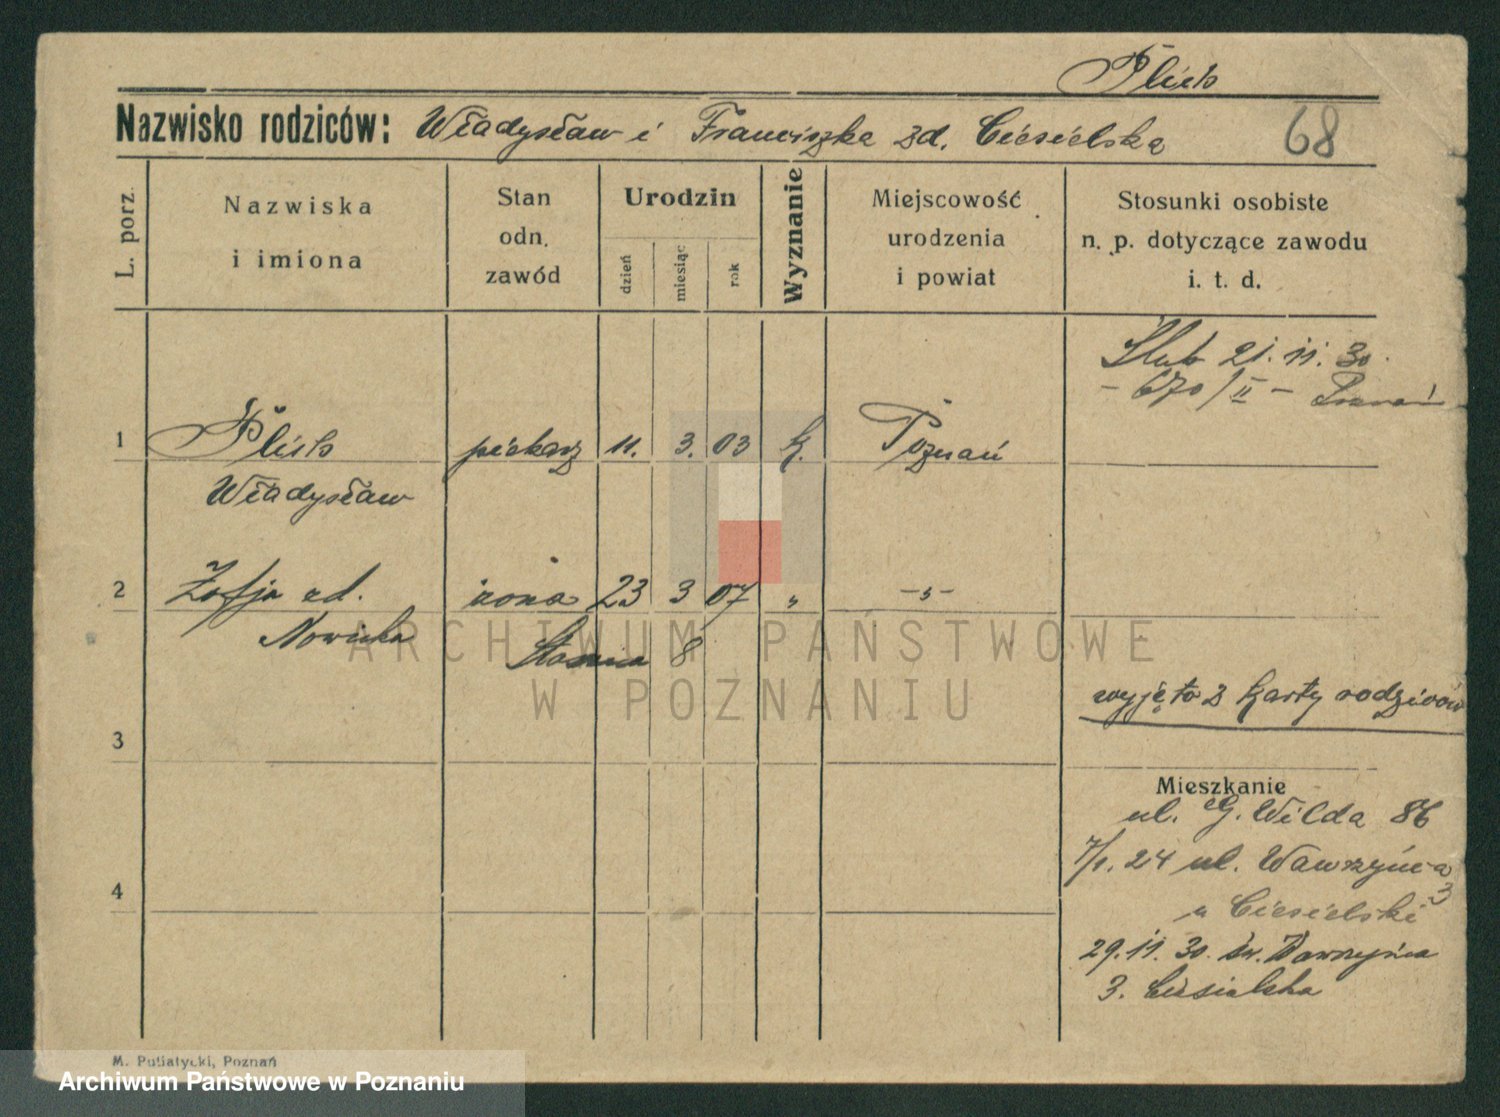 Plich
Nazwisko rodziców: Władysław i Franciszka zd. Ciesielska
68
L. porz.
Nazwiska
i imiona
Stan
odn.
zawód
Urodzin
dzień
miesiąc
rok
Wyznanie
Miejscowość
urodzenia
i powiat
Stosunki osobiste
n. p. dotyczące zawodu
i. t. d.
Ślub 21. 11. 30.
- 670/II - Poznań
1 Plich piekarz 11. 3. 03 k. Poznań
Władysław
2 Zofja zd. żona 23 3 07 " -"-
Nowicka
8
ARCHIWUM PAŃSTWOWE
W POZNANIU
wyjęto z karty rodziców
3
Mieszkanie
ul. G. Wilda 86
7/1. 24 ul. Wawrzyńca
3
u Ciesielski
4
29. 11. 30. św. Wawrzyńca
3. Ciesielska
M. Putiatycki, Poznań
Archiwum Państwowe w Poznaniu